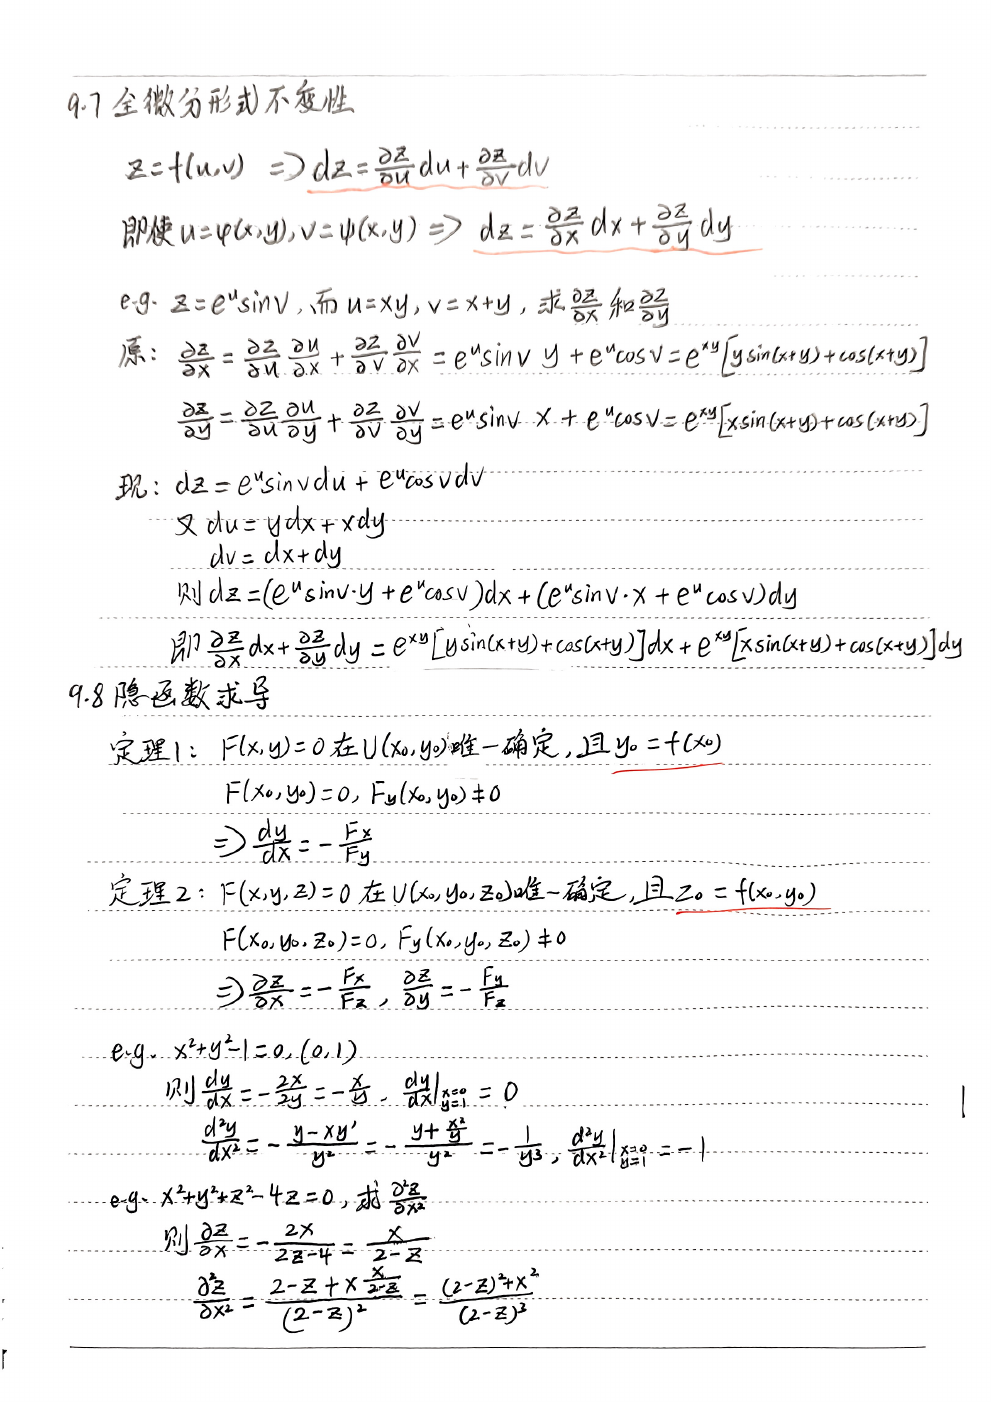 9.7 全微分形式不变性
z=f(u,v) ⇒ dz = ∂z/∂u du + ∂z/∂v dv
即使 u=φ(x,y), v=ψ(x,y) ⇒ dz = ∂z/∂x dx + ∂z/∂y dy
e.g. z=eᵘsinv, 而 u=xy, v=x+y, 求 ∂z/∂x 和 ∂z/∂y
原: ∂z/∂x = ∂z/∂u ∂u/∂x + ∂z/∂v ∂v/∂x = eᵘsinv y + eᵘcosv = e^{xy}[ysin(x+y)+cos(x+y)]
∂z/∂y = ∂z/∂u ∂u/∂y + ∂z/∂v ∂v/∂y = eᵘsinv x + eᵘcosv = e^{xy}[xsin(x+y)+cos(x+y)]
现: dz = eᵘsinvdu + eᵘcosvdv
又 du = ydx + xdy
dv = dx+dy
则 dz = (eᵘsinv·y + eᵘcosv)dx + (eᵘsinv·x + eᵘcosv)dy
即 ∂z/∂x dx + ∂z/∂y dy = e^{xy}[ysin(x+y)+cos(x+y)]dx + e^{xy}[xsin(x+y)+cos(x+y)]dy
9.8 隐函数求导
定理1: F(x,y)=0 在 U(x₀,y₀)唯一确定, 且 y₀=f(x₀)
F(x₀,y₀)=0, Fy(x₀,y₀)≠0
⇒ dy/dx = -Fx/Fy
定理2: F(x,y,z)=0 在 U(x₀,y₀,z₀)唯一确定, 且 z₀=f(x₀,y₀)
F(x₀,y₀,z₀)=0, Fy(x₀,y₀,z₀)≠0
⇒ ∂z/∂x = -Fx/Fz, ∂z/∂y = -Fy/Fz
e.g. x²+y²-1=0, (0,1)
则 dy/dx = -2x/2y = -x/y, dy/dx|x=0 y=1 = 0
d²y/dx² = -(y-xy')/y² = -(y+x²/y)/y² = -1/y³, d²y/dx²|x=0 y=1 = -1
e.g. x²+y²+z²-4z=0, 求 ∂²z/∂x²
则 ∂z/∂x = -2x/(2z-4) = x/(2-z)
∂²z/∂x² = (2-z+x x/(2-z))/(2-z)² = ((2-z)²+x²)/(2-z)³